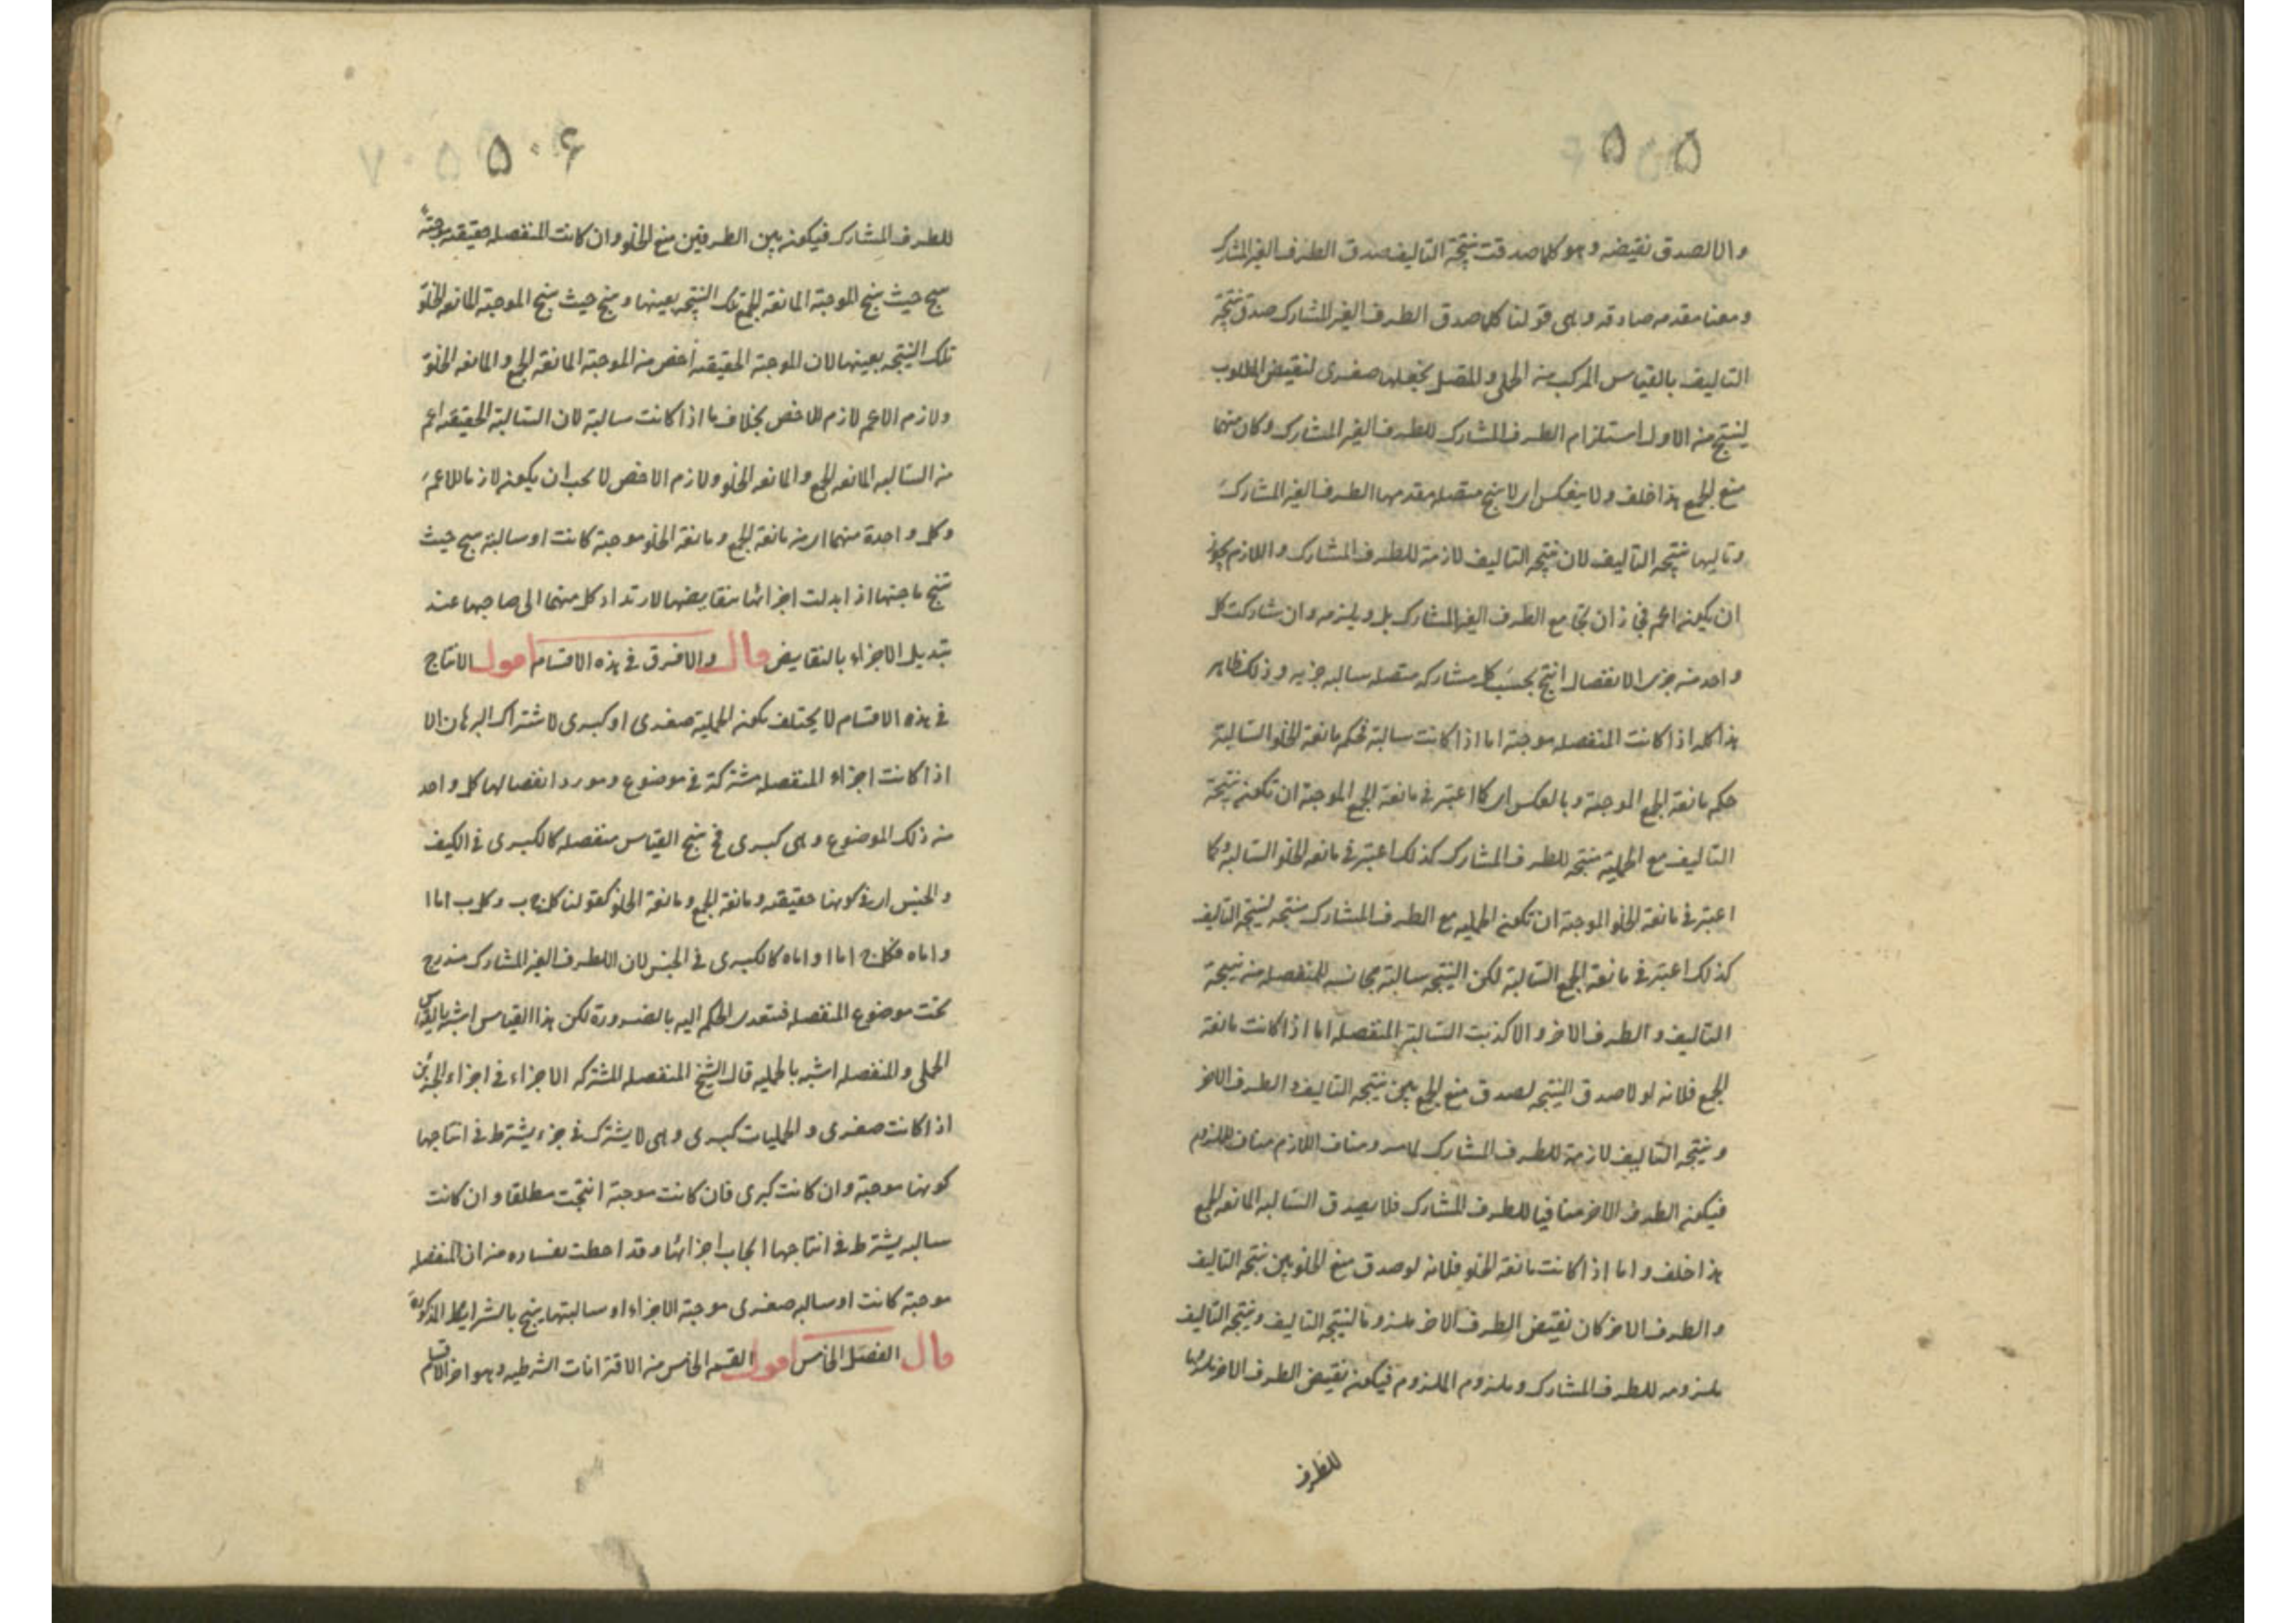 ۵۰۵
والا لصدق نقيضه وهو كلما صدقت نتيجة التاليف صدق الطرف الغير المشارك
ومعنا مقدمه صادقه وهى قولنا كلما صدق الطرف الغير المشارك صدق نتيجة
التاليف بالقياس المركب من الحملى والمتصل نجعلها صغرى لنقيض المطلوب
لينتج من الاول استلزام الطرف المشارك للطرف الغير المشارك وكان بينهما
منع الجمع هذا خلف ولا ينعكس اى لا ينتج متصله مقدمها الطرف الغير المشارك
وتاليها نتيجه التاليف لان نتيجه التاليف لازمة للطرف المشارك واللازم يجوز
ان يكون اعم فجاز ان يجامع الطرف الغير المشارك بل ويلزمه وان شاركت كل
واحد من جزى الانفصال انتج بحسب كل مشاركه متصله سالبه جزيه وذلك ظاهر
هذا كله اذا كانت المنفصله موجبة اما اذا كانت سالبة فحكم مانعة الخلو السالبة
حكم مانعة الجمع الموجبة وبالعكس اى كما اعتبر فى مانعة الجمع الموجبة ان تكون نتيجة
التاليف مع الحملية منتجه للطرف المشارك كذلك اعتبر فى مانعه الخلو السالبه وكما
اعتبر فى مانعة الخلو الموجبة ان تكون الحمليه مع الطرف المشارك منتجه لنتيجه التاليف
كذلك اعتبر فى مانعة الجمع السالبة لكن النتيجه سالبة مجانسه للمنفصله من نتيجة
التاليف والطرف الاخر والا كذبت السالبة المنفصله اما اذا كانت مانعة
الجمع فلانه لولا صدق النتيجه لصدق منع الجمع بين نتيجه التاليف والطرف الاخر
ونتيجه التاليف لازمة للطرف المشارك لما مر ومناف اللازم مناف للملزوم
فيكون الطرف الاخر منافيا للطرف المشارك فلا يصدق السالبه المانعه الجمع
هذا خلف واما اذا كانت مانعة الخلو فلانه لو صدق منع الخلو بين نتيجه التاليف
والطرف الاخر كان نقيض الطرف الاخر ملزوما لنتيجه التاليف ونتيجه التاليف
ملزومه للطرف المشارك وملزوم الملزوم فيكون نقيض الطرف الاخر ملزوما
للطرف
۵۰۶
للطرف المشارك فيكون بين الطرفين منع الخلو وان كانت المنفصله حقيقيه موجبة
ينتج حيث ينتج الموجبة المانعة الجمع تلك النتيجه بعينها وينتج حيث ينتج الموجبة المانعه الخلو
تلك النتيجه بعينها لان الموجبة الحقيقيه أخص من الموجبة المانعة الجمع والمانعه الخلو
ولازم الاعم لازم للاخص بخلاف ما اذا كانت سالبة لان السالبة الحقيقيه اعم
من السالبه المانعه الجمع والمانعه الخلو ولازم الاخص لا يجب ان يكون لازما للاعم
وكل واحدة منهما اى من مانعة الجمع ومانعة الخلو موجبة كانت او سالبة ينتج حيث
تنتج صاحبتها اذا ابدلت اجزائها بنقايضها لارتداد كل منهما الى صاحبها عند
تبديل الاجزاء بالنقايض قال ولا فرق فى هذه الاقسام اقول الانتاج
فى هذه الاقسام لا يختلف بكون الحملية صغرى او كبرى لاشتراك البرهان الا
اذا كانت اجزاء المنفصله مشتركة فى موضوع ومورد انفصالها كل واحد
من ذلك الموضوع وهى كبرى فح ينتج القياس منفصله كالكبرى فى الكيف
والجنس اى فى كونها حقيقيه ومانعة الجمع ومانعة الخلو كقولنا كل ج ب وكل ب اما ا
واما ه فكل ج اما ا واما ه كالكبرى فى الجنس لان الطرف الغير المشارك مندرج
تحت موضوع المنفصله فيتعدى الحكم اليه بالضرورة لكن هذا القياس اشبه بالقياس
الحملى والمنفصله اشبه بالحمليه قال الشيخ المنفصله المشتركه الاجزاء فى اجزاء الجزئين
اذا كانت صغرى والحمليات كبرى وهى لا يشترك فى جزء يشترط فى انتاجها
كونها موجبة وان كانت كبرى فان كانت موجبة انتجت مطلقا وان كانت
سالبه يشترط فى انتاجها ايجاب اجزائها وقد احطت بفساده من ان المنفصله
موجبة كانت او سالبه صغرى موجبة الاجزاء او سالبتها ينتج بالشرايط المذكورة
قال الفصل الخامس اقول القسم الخامس من الاقترانات الشرطيه وهو اخر الاقسام